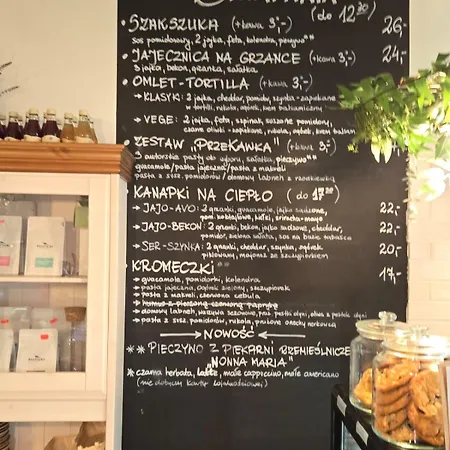 (do 12³⁰)
• SZAKSZUKA (+kawa 3,-) 26,-
sos pomidorowy, 2 jajka, feta, kolendra, pieczywo**
• JAJECZNICA NA GRZANCE (+kawa 3,-) 24,-
3 jajka, bekon, grzanka, sałatka
• OMLET-TORTILLA (+kawa 3,-)
→ KLASYK: 2 jajka, cheddar, pomidor, szynka - zapiekane
w tortilli, rukola, ogórek, krem balsamiczny
→ VEGE: 2 jajka, feta, szpinak, suszone pomidory,
czarne oliwki - zapiekane, rukola, ogórek, krem balsam
• ZESTAW „PRZEKAWKA" (+kawa 3,-)
3 autorskie pasty do wyboru, sałatka, pieczywo**
guacamole/pasta jajeczna/pasta z makreli
pasta z susz. pomidorów/domowy labneh z rzodkiewką
• KANAPKI NA CIEPŁO (do 17³⁰)
→ JAJO-AVO: 2 grzanki, guacamole, jajko sadzone, 22,-
pom. koktajlowe, kiełki, sriracha-mayo
→ JAJO-BEKON: 2 grzanki, bekon, jajko sadzone, cheddar, 22,-
pomidor, zielona sałata, sos na bazie tabasco
→ SER-SZYNKA: 2 grzanki, cheddar, szynka, ogórek 20,-
majonez ze szczypiorkiem
• KROMECZKI** 17,-
→ guacamole, pomidorki, kolendra
→ pasta jajeczna, ogórek zielony, szczypiorek
→ pasta z makreli, czerwona cebula
→ domowy labneh, warzywa sezonowe,
→ pasta z susz. pomidorów, rukola, prażone orzechy nerkowca
→ NOWOŚĆ ←
** PIECZYWO Z PIEKARNI RZEMIEŚLNICZEJ
„NONNA MARIA"
* czarna herbata, latte, małe cappuccino, małe americano
(nie dotyczy karty lojalnościowej)